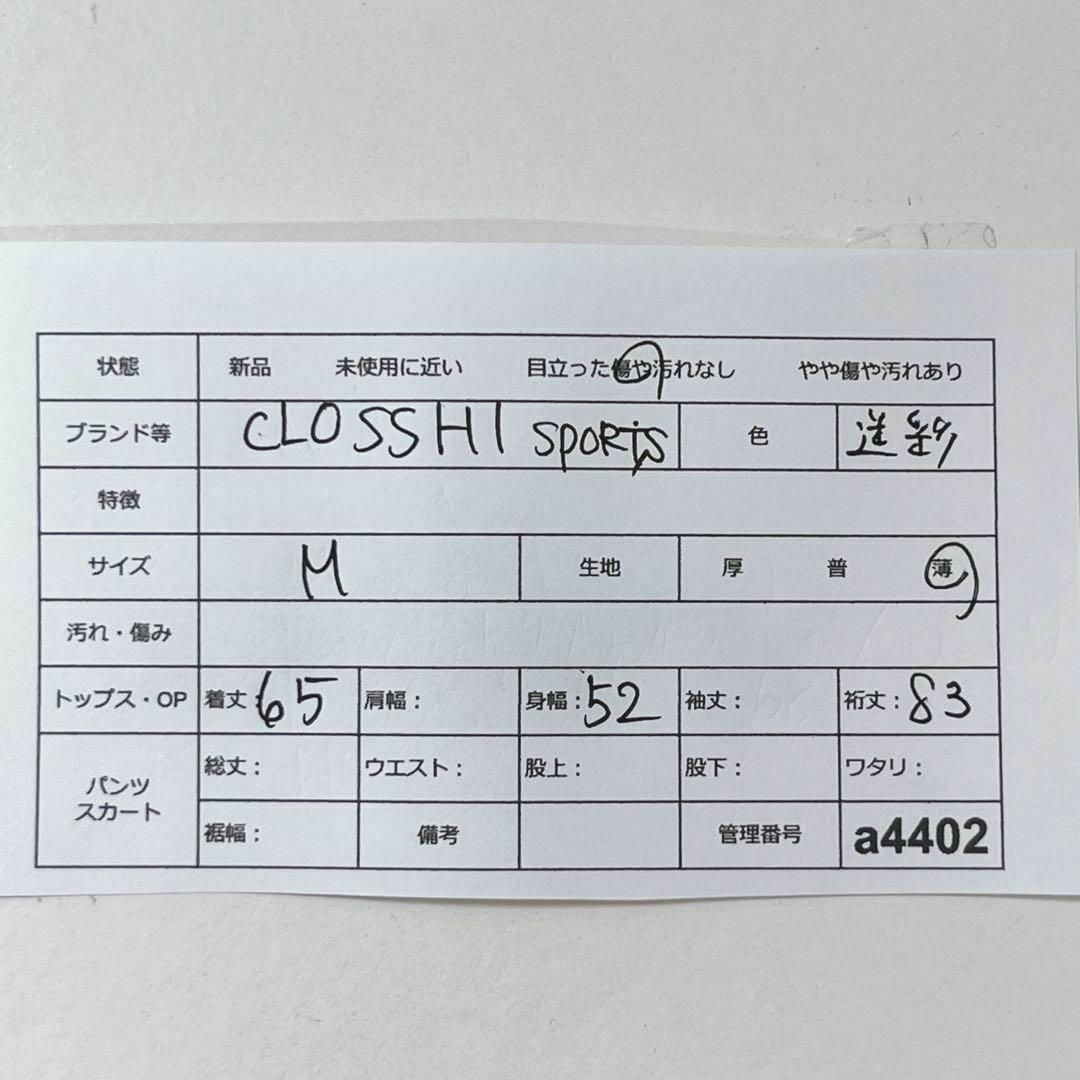 状態 新品 未使用に近い 目立った傷や汚れなし やや傷や汚れあり
ブランド等 CLOSSHI SPORTS 色 迷彩
特徴
サイズ M 生地 厚 普 薄
汚れ・傷み
トップス・OP 着丈 65 肩幅: 身幅:52 袖丈: 裄丈:83
パンツ スカート 総丈: ウエスト: 股上: 股下: ワタリ:
裾幅: 備考 管理番号 a4402